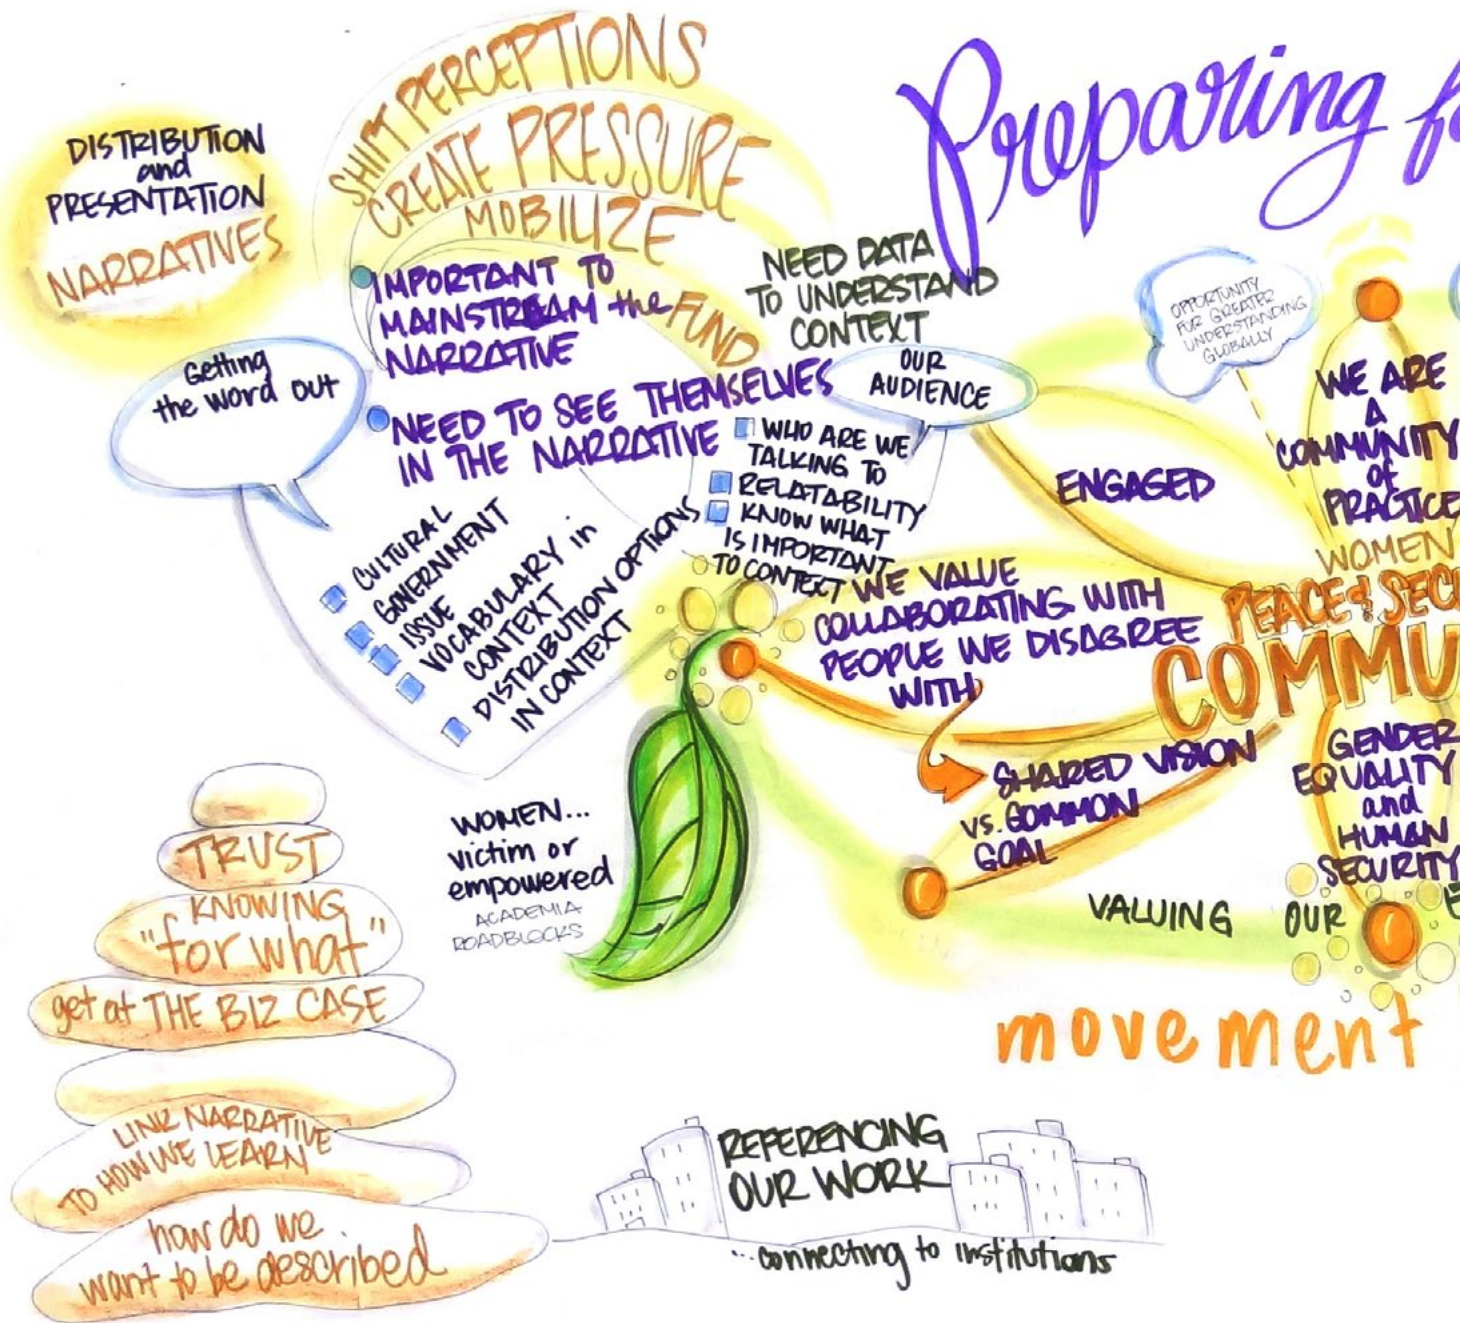 Preparing
DISTRIBUTION
and
PRESENTATION
NARRATIVES
SHIFT PERCEPTIONS
CREATE PRESSURE
MOBILIZE
FUND
IMPORTANT TO
MAINSTREAM the
NARRATIVE
NEED TO SEE THEMSELVES
IN THE NARRATIVE
Getting
the word out
CULTURAL
GOVERNMENT
ISSUE
VOCABULARY in
CONTEXT
DISTRIBUTION OPTIONS
IN CONTEXT
NEED DATA
TO UNDERSTAND
CONTEXT
OUR
AUDIENCE
WHO ARE WE
TALKING TO
RELATABILITY
KNOW WHAT
IS IMPORTANT
TO CONTEXT
OPPORTUNITY
FOR GREATER
UNDERSTANDING
GLOBALLY
ENGAGED
WE ARE
A
COMMUNITY
of
PRACTICE
WOMEN
PEACE & SEC
COMMU
WE VALUE
COLLABORATING WITH
PEOPLE WE DISAGREE
WITH
SHARED VISION
vs. COMMON
GOAL
GENDER
EQUALITY
and
HUMAN
SECURITY
VALUING OUR
movement
WOMEN...
victim or
empowered
ACADEMIA
ROADBLOCKS
TRUST
KNOWING
"for what"
get at THE BIZ CASE
LINK NARRATIVE
TO HOW WE LEARN
how do we
want to be described
REFERENCING
OUR WORK
...connecting to institutions